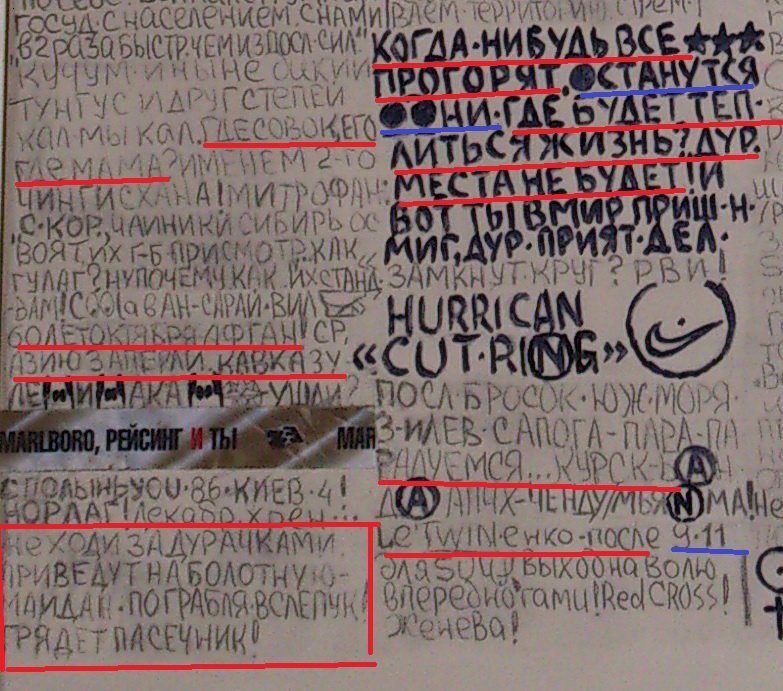 ГОСУД. С НАСЕЛЕНИЕМ. СНАМИ
"В 2 РАЗА БЫСТР. ЧЕМ ИЗ ПОСЛ. СИЛ"
КУЧУМ. И НЫНЕ ДИКИЙ
ТУНГУС И ДРУГ СТЕПЕЙ
ХАЛ-МЫ КАЛ. ГДЕ СОВОК, ЕГО
ГДЕ МАМА? ИМЕНЕМ 2-ГО
ЧИНГИСХАНА! МИТРОФАН.
С. КОР. ЧАЙНИКИ СИБИРЬ ОС
ВОЯТ, ИХ Г-Б ПРИСМОТР. КАК
ГУЛАГ? НУ ПОЧЕМУ КАК. ИХ СТАНД.
ВАМ! COOLа В АН-САРАЙ-ВИЛ
60 ЛЕТ ОКТЯБРЯ АФГАН! СР.
АЗИЮ ЗАПЕРЛИ. КАВКАЗ У
MARLBORO, РЕЙСИНГ И ТЫ MAR
С ПОЛЫНЬYOU-86-КИЕВ-4!
НОРЛАГ! Декабр. хрен
НЕ ХОДИ ЗА ДУРАЧКАМИ
ПРИВЕДУТ НА БОЛОТНУЮ-
МАЙДАН-ПО ГРАБЛЯ-ВСЛЕПУК!
ГРЯДЕТ ПАСЕЧНИК!
ВЛЕМ ТЕРРИТОРИЮ
КОГДА-НИБУДЬ ВСЕ ★★★
ПРОГОРЯТ. ●СТАНУТСЯ
●●НИ. ГДЕ БУДЕТ ТЕП-
ЛИТЬСЯ ЖИЗНЬ? ДУР.
МЕСТА НЕ БУДЕТ! И
ВОТ ТЫ В МИР ПРИШ. Н.
МИГ, ДУР. ПРИЯТ. ДЕЛ.
ЗАМКНУТ. КРУГ? РВИ!
HURRICAN
«CUT·RING»
ПОСЛ. БРОСОК. ЮЖ. МОРЯ.
3-И ЛЕВ. САПОГА-ПАРА-ПА
РАДУЕМСЯ... КУРСК-
АПЧХ-ЧЕНДУ МА! НЕ
Le TWIN.енко-после 9·11
для ВЫХОД НА ВОЛЮ
вперед ногами! Red CROSS!
Женева!